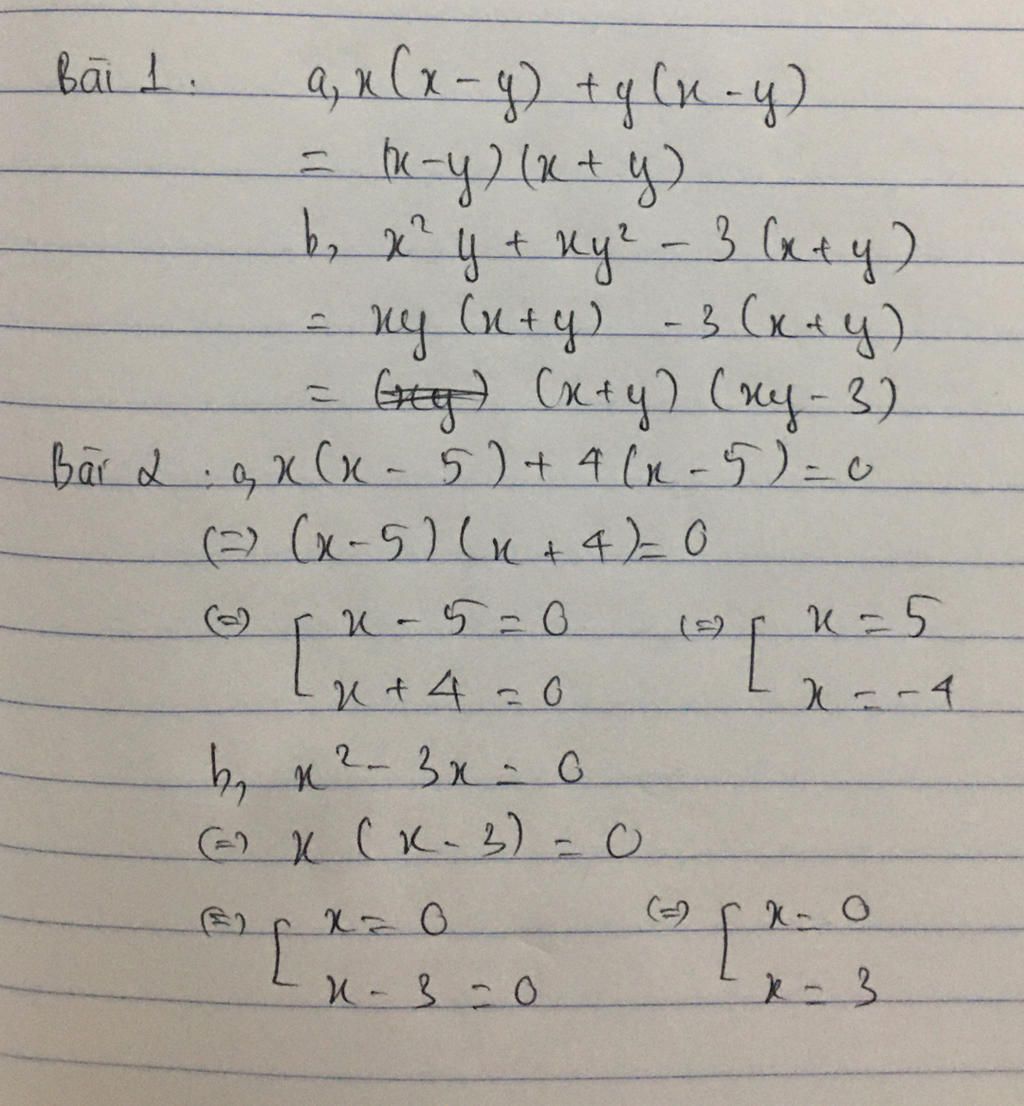 Bài 1 : a, x(x - y) + y(x - y)
= (x - y)(x + y)
b, x² y + xy² - 3 (x + y)
= xy (x + y) - 3 (x + y)
= (xy) (x + y) (xy - 3)
Bài 2 : a, x(x - 5) + 4(x - 5) = 0
(=) (x - 5)(x + 4) = 0
(=) [ x - 5 = 0 (=) [ x = 5
x + 4 = 0 x = -4
b, x² - 3x = 0
(=) x (x - 3) = 0
(=) [ x = 0 (=) [ x = 0
x - 3 = 0 x = 3